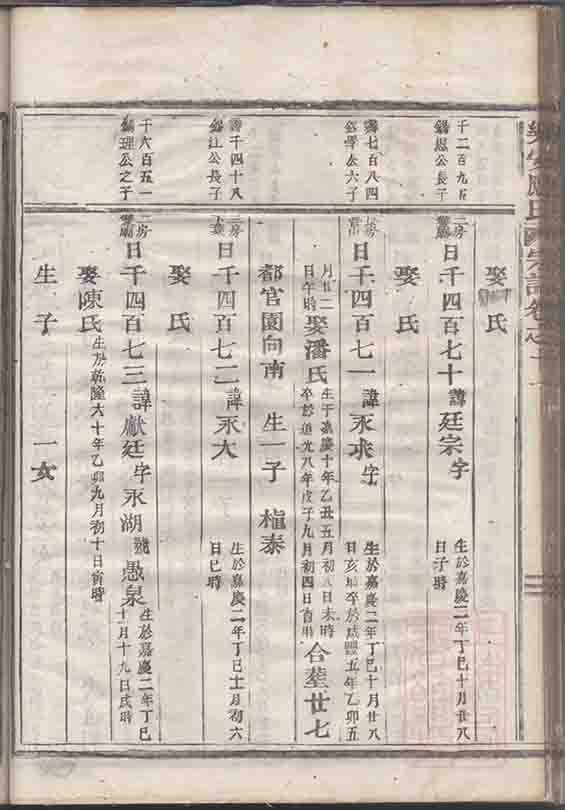 娶
氏
千二百九五
公長子
二房
日千四百七十 諱廷宗 字
生於嘉慶二年丁巳十月廿八
日子時
娶
氏
七百八四
公六子
房
日千四百七一 諱永求 字
生於嘉慶二年丁巳十月廿八
日亥時卒於咸豐五年乙卯五
月廿二
日午時
娶潘氏
生于嘉慶十年乙丑五月初八日未時
卒於道光八年戊子九月初四日酉時
合塟廿七
都官園向南
生一子
植泰
千四十八
江公長子
二房
日千四百七二 諱永大
生於嘉慶二年丁巳十一月初六
日巳時
娶
氏
千六百五一
理公之子
二房
日千四百七三 諱獻廷 字永湖 號愚泉
生於嘉慶二年丁巳
十月十九日戌時
娶陳氏
生於乾隆六十年乙卯九月初十日寅時
生子
一女